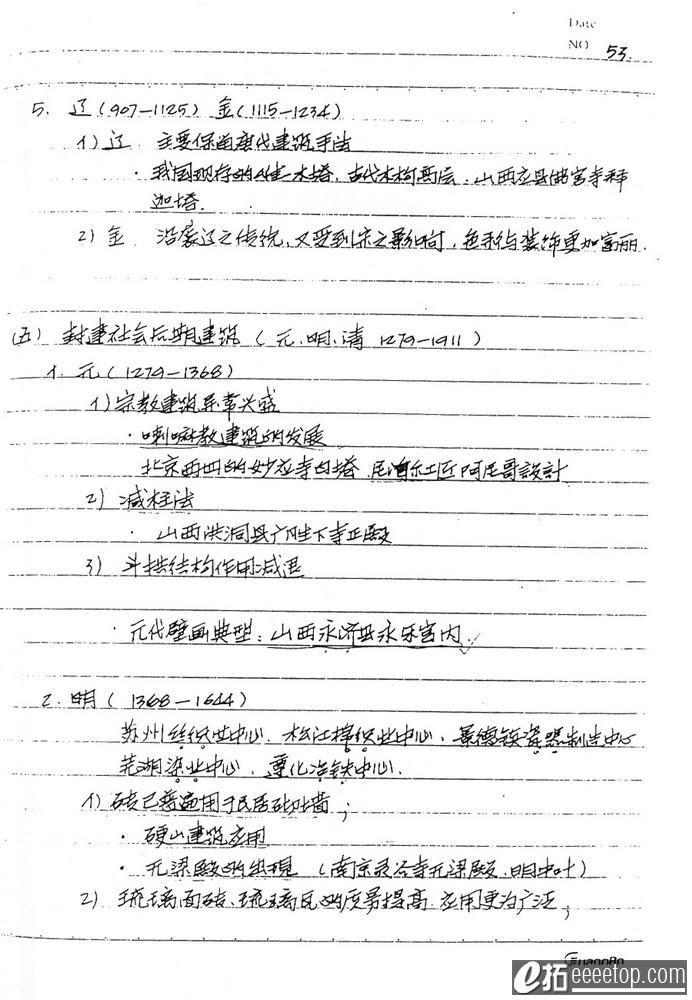 Date
NO 53.
5. 辽(907-1125) 金(1115-1234)
1)辽 主要保留唐代建筑手法
· 我国现存的唯一木塔,古代木构高层.山西应县佛宫寺释
迦塔.
2)金 沿袭辽之传统,又受到宋之影响,色彩与装饰更加富丽.
(五) 封建社会后期建筑(元.明.清 1279-1911)
1.元(1279-1368)
1)宗教建筑异常兴盛
· 喇嘛教建筑的发展
北京西四的妙应寺白塔 尼泊尔工匠阿尼哥設計
2) 减柱法
· 山西洪洞县广胜下寺正殿
3) 斗拱结构作用减退
· 元代壁画典型:山西永济县永乐宫内.
2.明(1368-1644)
苏州丝织业中心.松江棉织业中心.景德镇瓷器制造中心
芜湖染业中心.遵化冶铁中心.
1)砖已普遍用于民居砌墙;
· 硬山建筑应用
· 无梁殿的出現 (南京灵谷寺无梁殿.明中叶)
2) 琉璃面砖、琉璃瓦的质量提高.应用更为广泛;
GuangBo
e拓 eeeetop.com